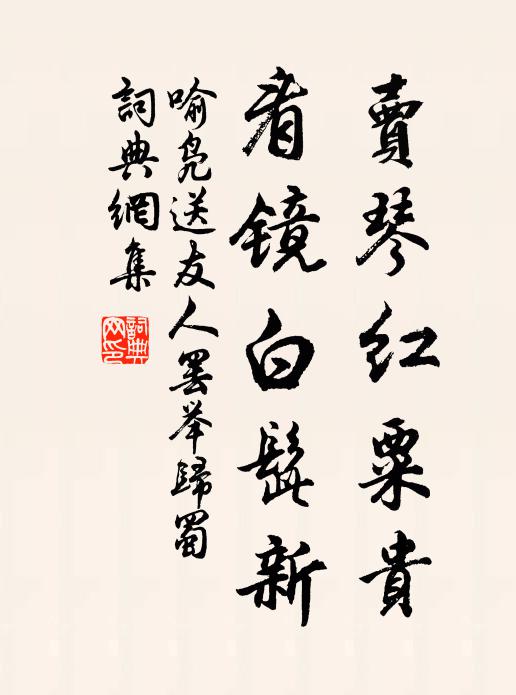 賣琴紅粟貴
看鏡白髭新
喻凫送友人罢举歸蜀
詞典網集
詞典網印